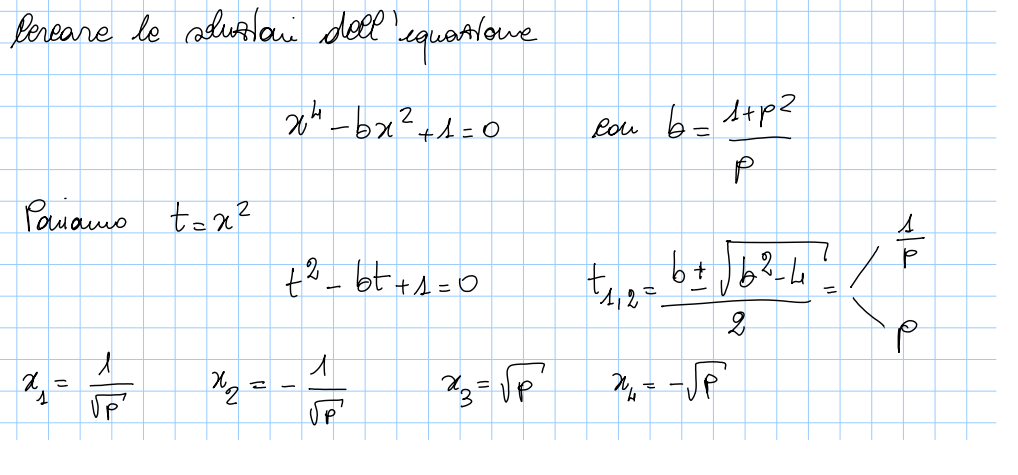 Cercare le soluzioni dell'equazione
x⁴ - bx² + 1 = 0 con b = (1+p²)/p
Poniamo t = x²
t² - bt + 1 = 0 t₁,₂ = (b ± √(b² - 4))/2 = 1/p p
x₁ = 1/√p x₂ = - 1/√p x₃ = √p x₄ = -√p